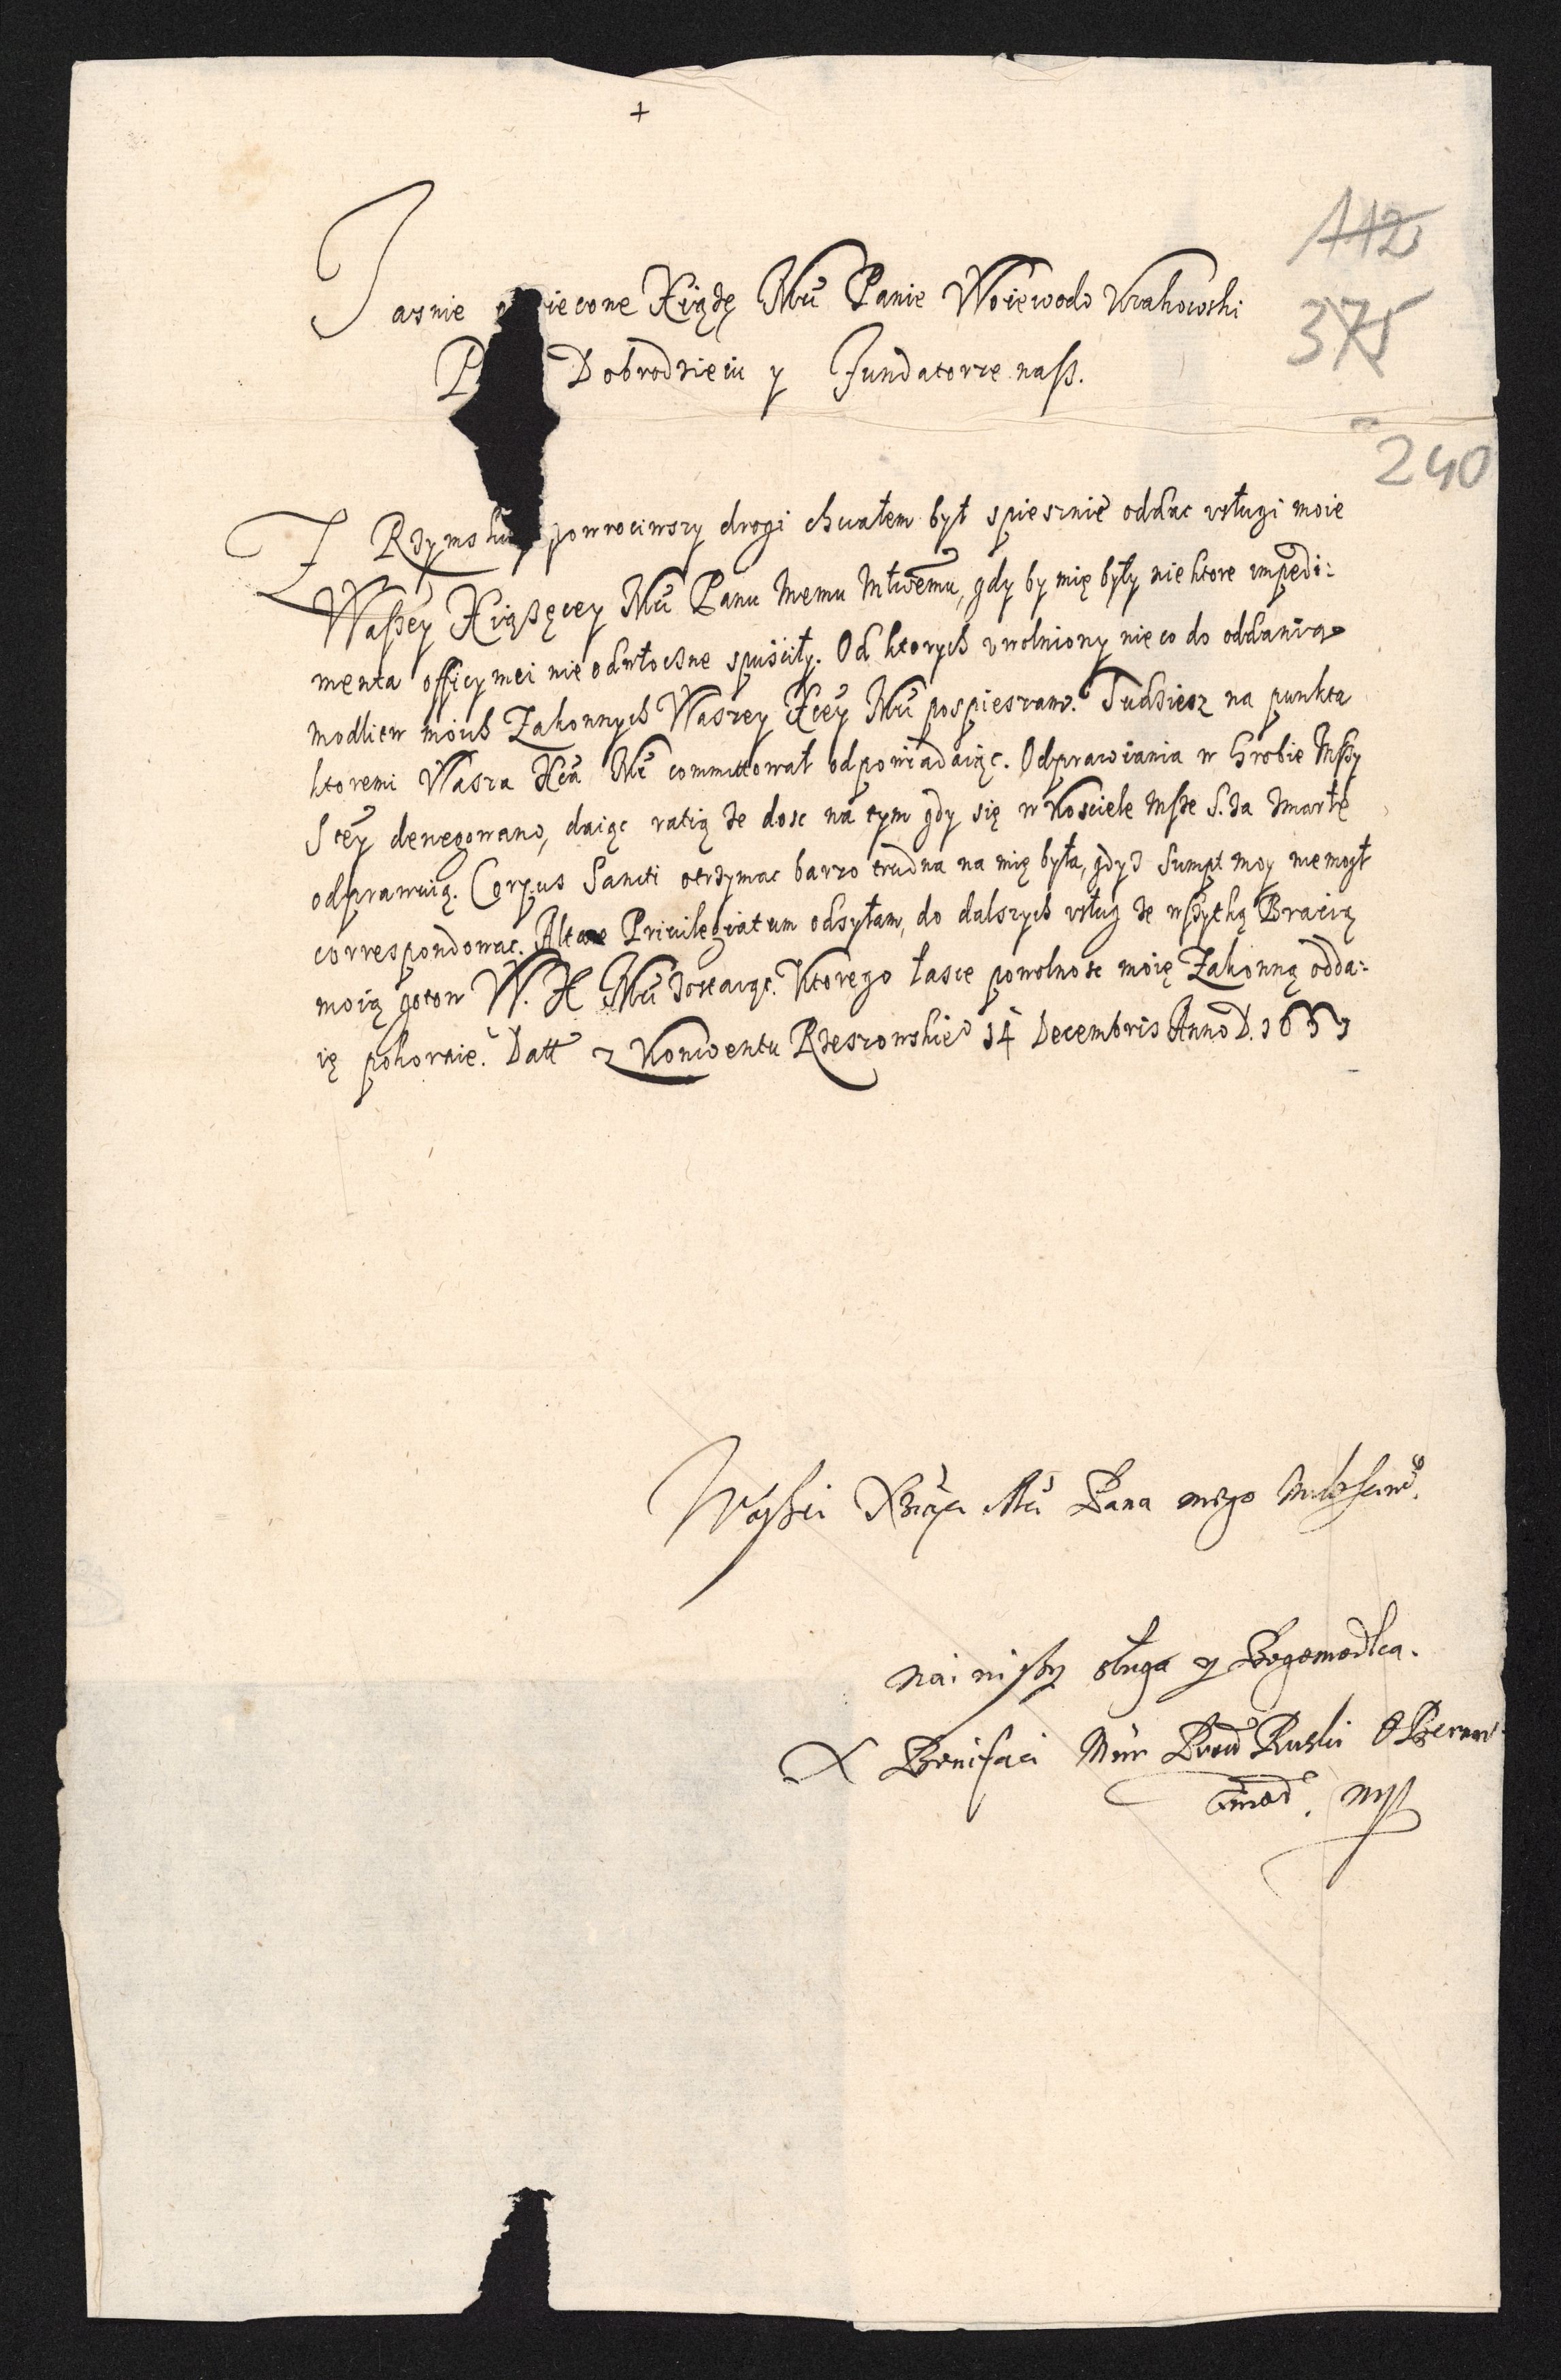 +
112
Jasnie iecone Xiążę Mci Panie Woiewodo Krakowski
375
P Dobrodzieiu y Fundatorze nasz.
240
Z Rzymski powrociwszy drogi chciałem był spiesznie oddac vsługi moie
Waszey Xiążęcey Mci Panu Memu Młwemu, gdy by mię były niektore impedi:
menta officy mei nieodwłoczne spuściły. Od ktorych vwolniony nieco do oddania
modlitw moich Zakonnych Waszey Xcey Mci pospieszam. Tudziesz na punkta
ktoremi Wasza Xca Mc committował odpowiadaiąc. Odprawiania w Grobie Mszy
Stey denegowano, daiąc ratią że dosc na tym gdy się w Kosciele Msze S. za zmarłe
odprawuią. Corpus Sancti otrzymac barzo trudna na mię była, gdyż sumpt moy niemogł
correspondowac. Altare Priuilegiatum odsyłam, do dalszych vsług ze wszytką Bracią
moią gotow W. X Mci zostaiąc. Ktorego łasce powolnosc moię Zakonną odda:
ię pokornie. Datt z Konwentu Rzeszowskie 14 Decembris Anno D.
Pana mego
nainiszy sługa y Bogomodlca.
X Bonifaci Ruski
mp